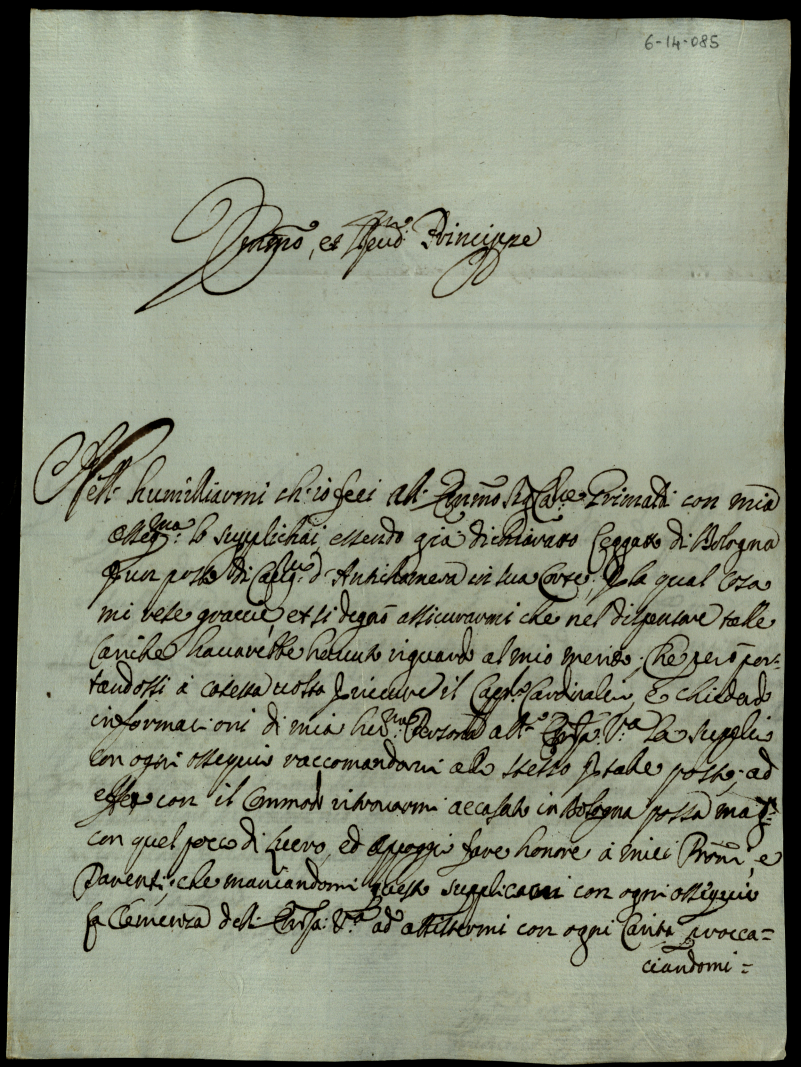 6-14-085
et Princippe
Nell' humiliarmi ch'io feci all' Emmo Sig Grimaldi con mia
lo supplichai, essendo già dichiarato Leggato di Bologna
un posto di d'Antichamera in sua Corte, la qual cosa
mi rese graccie, et si degnò assicurarmi che nel dispensare talle
Cariche havarebbe havuto riguardo al mio merito, Che però por-
tandossi à cotesta volta ricevere il Capp.o Cardinalei E chiedendo
informationi di mia Persona all' La supplico
con ogni ossequio raccomandarmi allo stesso tale posto, ad
effetto con il Commodo ritrovarmi accasato in Bologna possa
con quel poco di lucro, ed appoggio fare honore à miei e
Parenti, che mancandomi questo supplicarei con ogni ossequio
la Clemenza dell' V.a ad assistermi con ogni Carità procca=
ciandomi=